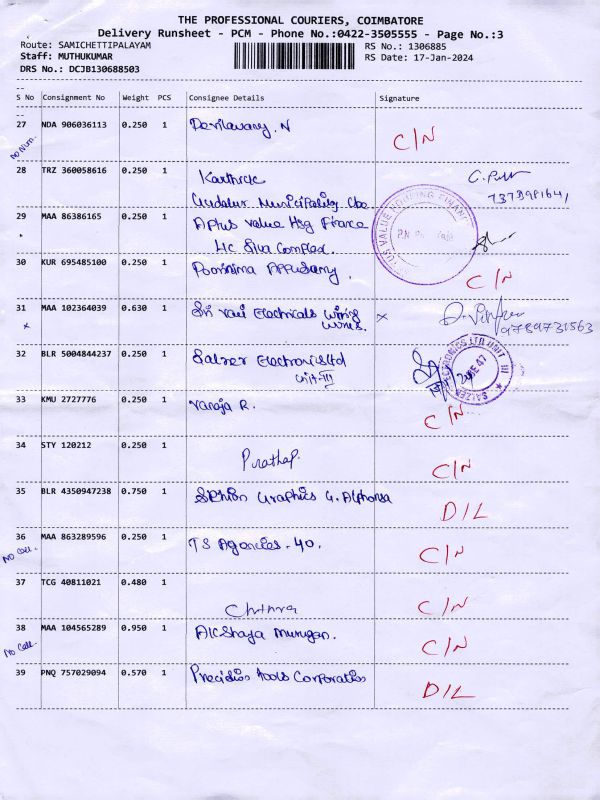 THE PROFESSIONAL COURIERS, COIMBATORE
Delivery Runsheet - PCM - Phone No.:0422-3505555 - Page No.:3
Route: SAMICHETTIPALAYAM RS No.: 1306885
Staff: MUTHUKUMAR RS Date: 17-Jan-2024
DRS No.: DCJB130688503
S No Consignment No Weight PCS Consignee Details Signature
27 NDA 906036113 0.250 1 N C/N
28 TRZ 360058616 0.250 1 Karthick
Gudalur Municipality Cbe
29 MAA 86386165 0.250 1 Aptus Value Hsg Finance
LIC Siva Complex.
30 KUR 695485100 0.250 1 Poornima Appusamy. C/N
31 MAA 102364039 0.630 1 Sri Vari Electricals Wiring x
Works. 9789731563
x
32 BLR 5004844237 0.250 1 Salzer Electronics Ltd
Unit-III
33 KMU 2727776 0.250 1 Vanaja R. C/N
34 STY 120212 0.250 1 Prathap C/N
35 BLR 4350947238 0.750 1 Graphics G. Alphonsa D/L
36 MAA 863289596 0.250 1 TS Agencies - 40. C/N
No Call.
37 TCG 40811021 0.480 1 Chithra C/N
38 MAA 104565289 0.950 1 Akshaya Murugan. C/N
No Call.
39 PNQ 757029094 0.570 1 Precision Tools Corporation D/L